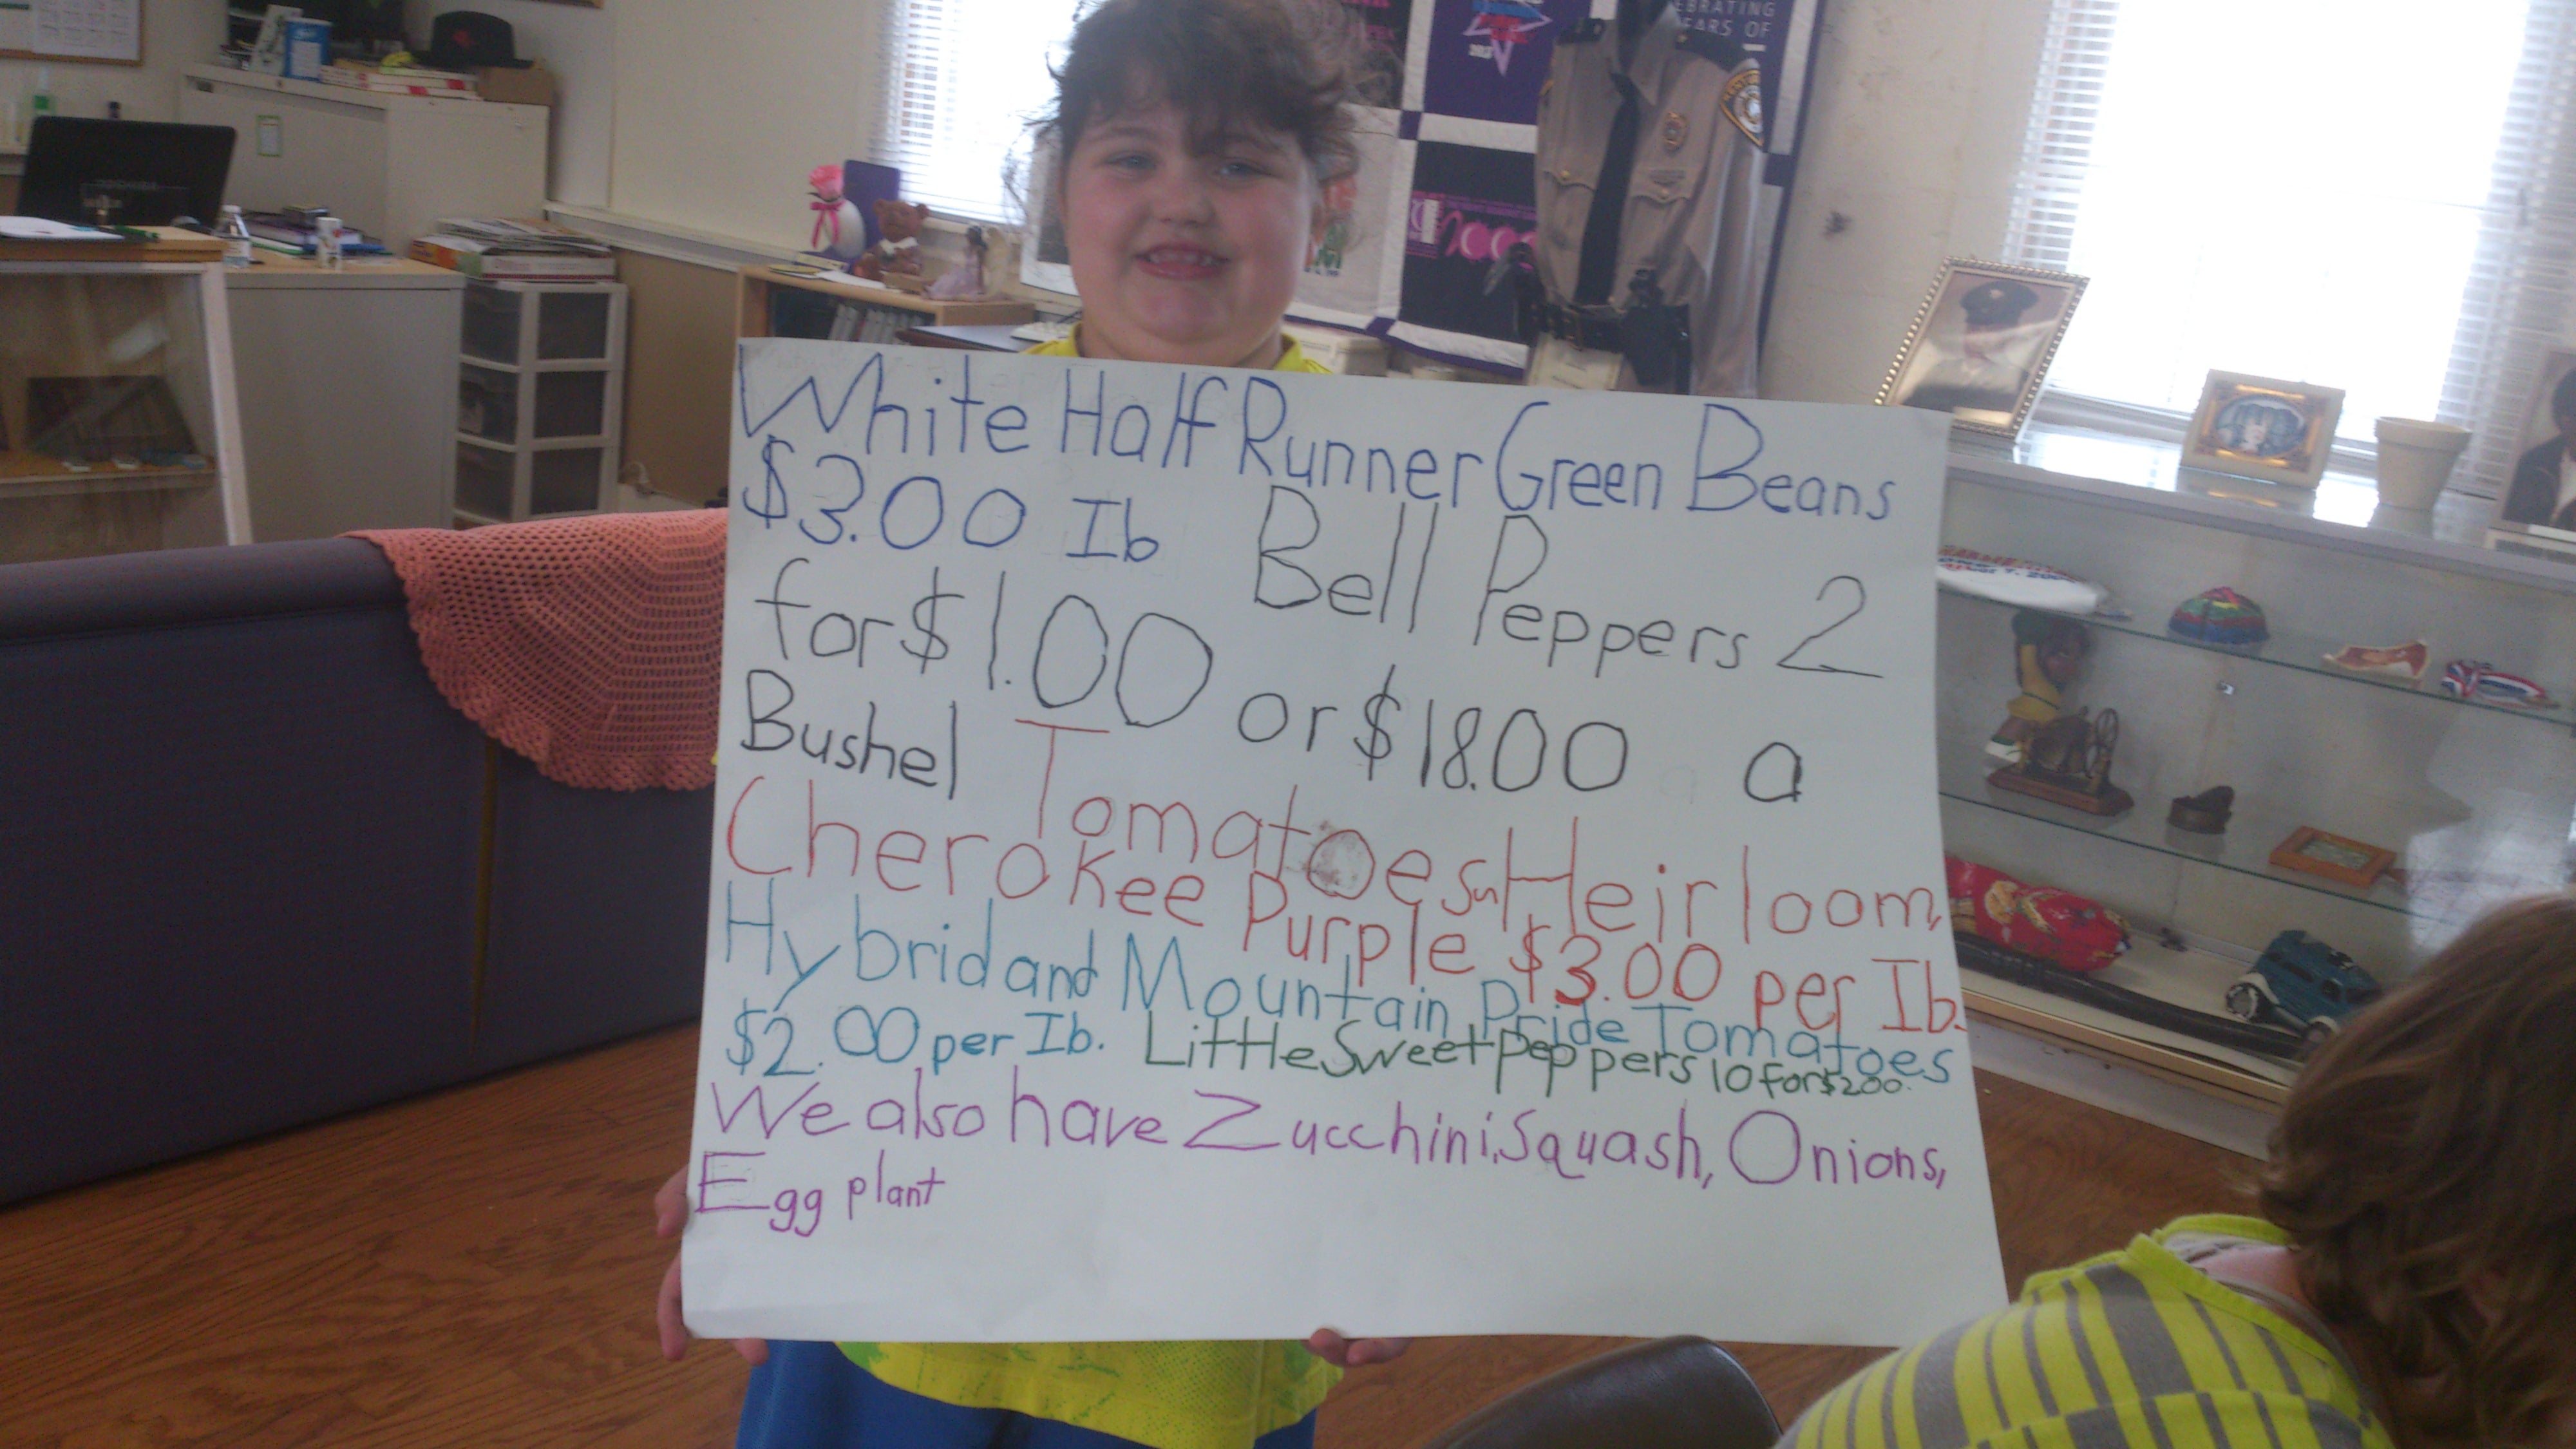 EBRATING
EARS OF
TOSHIBA
White Half Runner Green Beans
$3.00 Ib Bell Peppers 2
for $1.00 or $18.00 a
Bushel Tomatoes Sun Heirloom,
Cherokee Purple $3.00 per Ib.
Hybrid and Mountain Pride Tomatoes
$2.00 per Ib. Little Sweet Peppers 10 for $2.00.
We also have Zucchini, Squash, Onions,
Egg plant